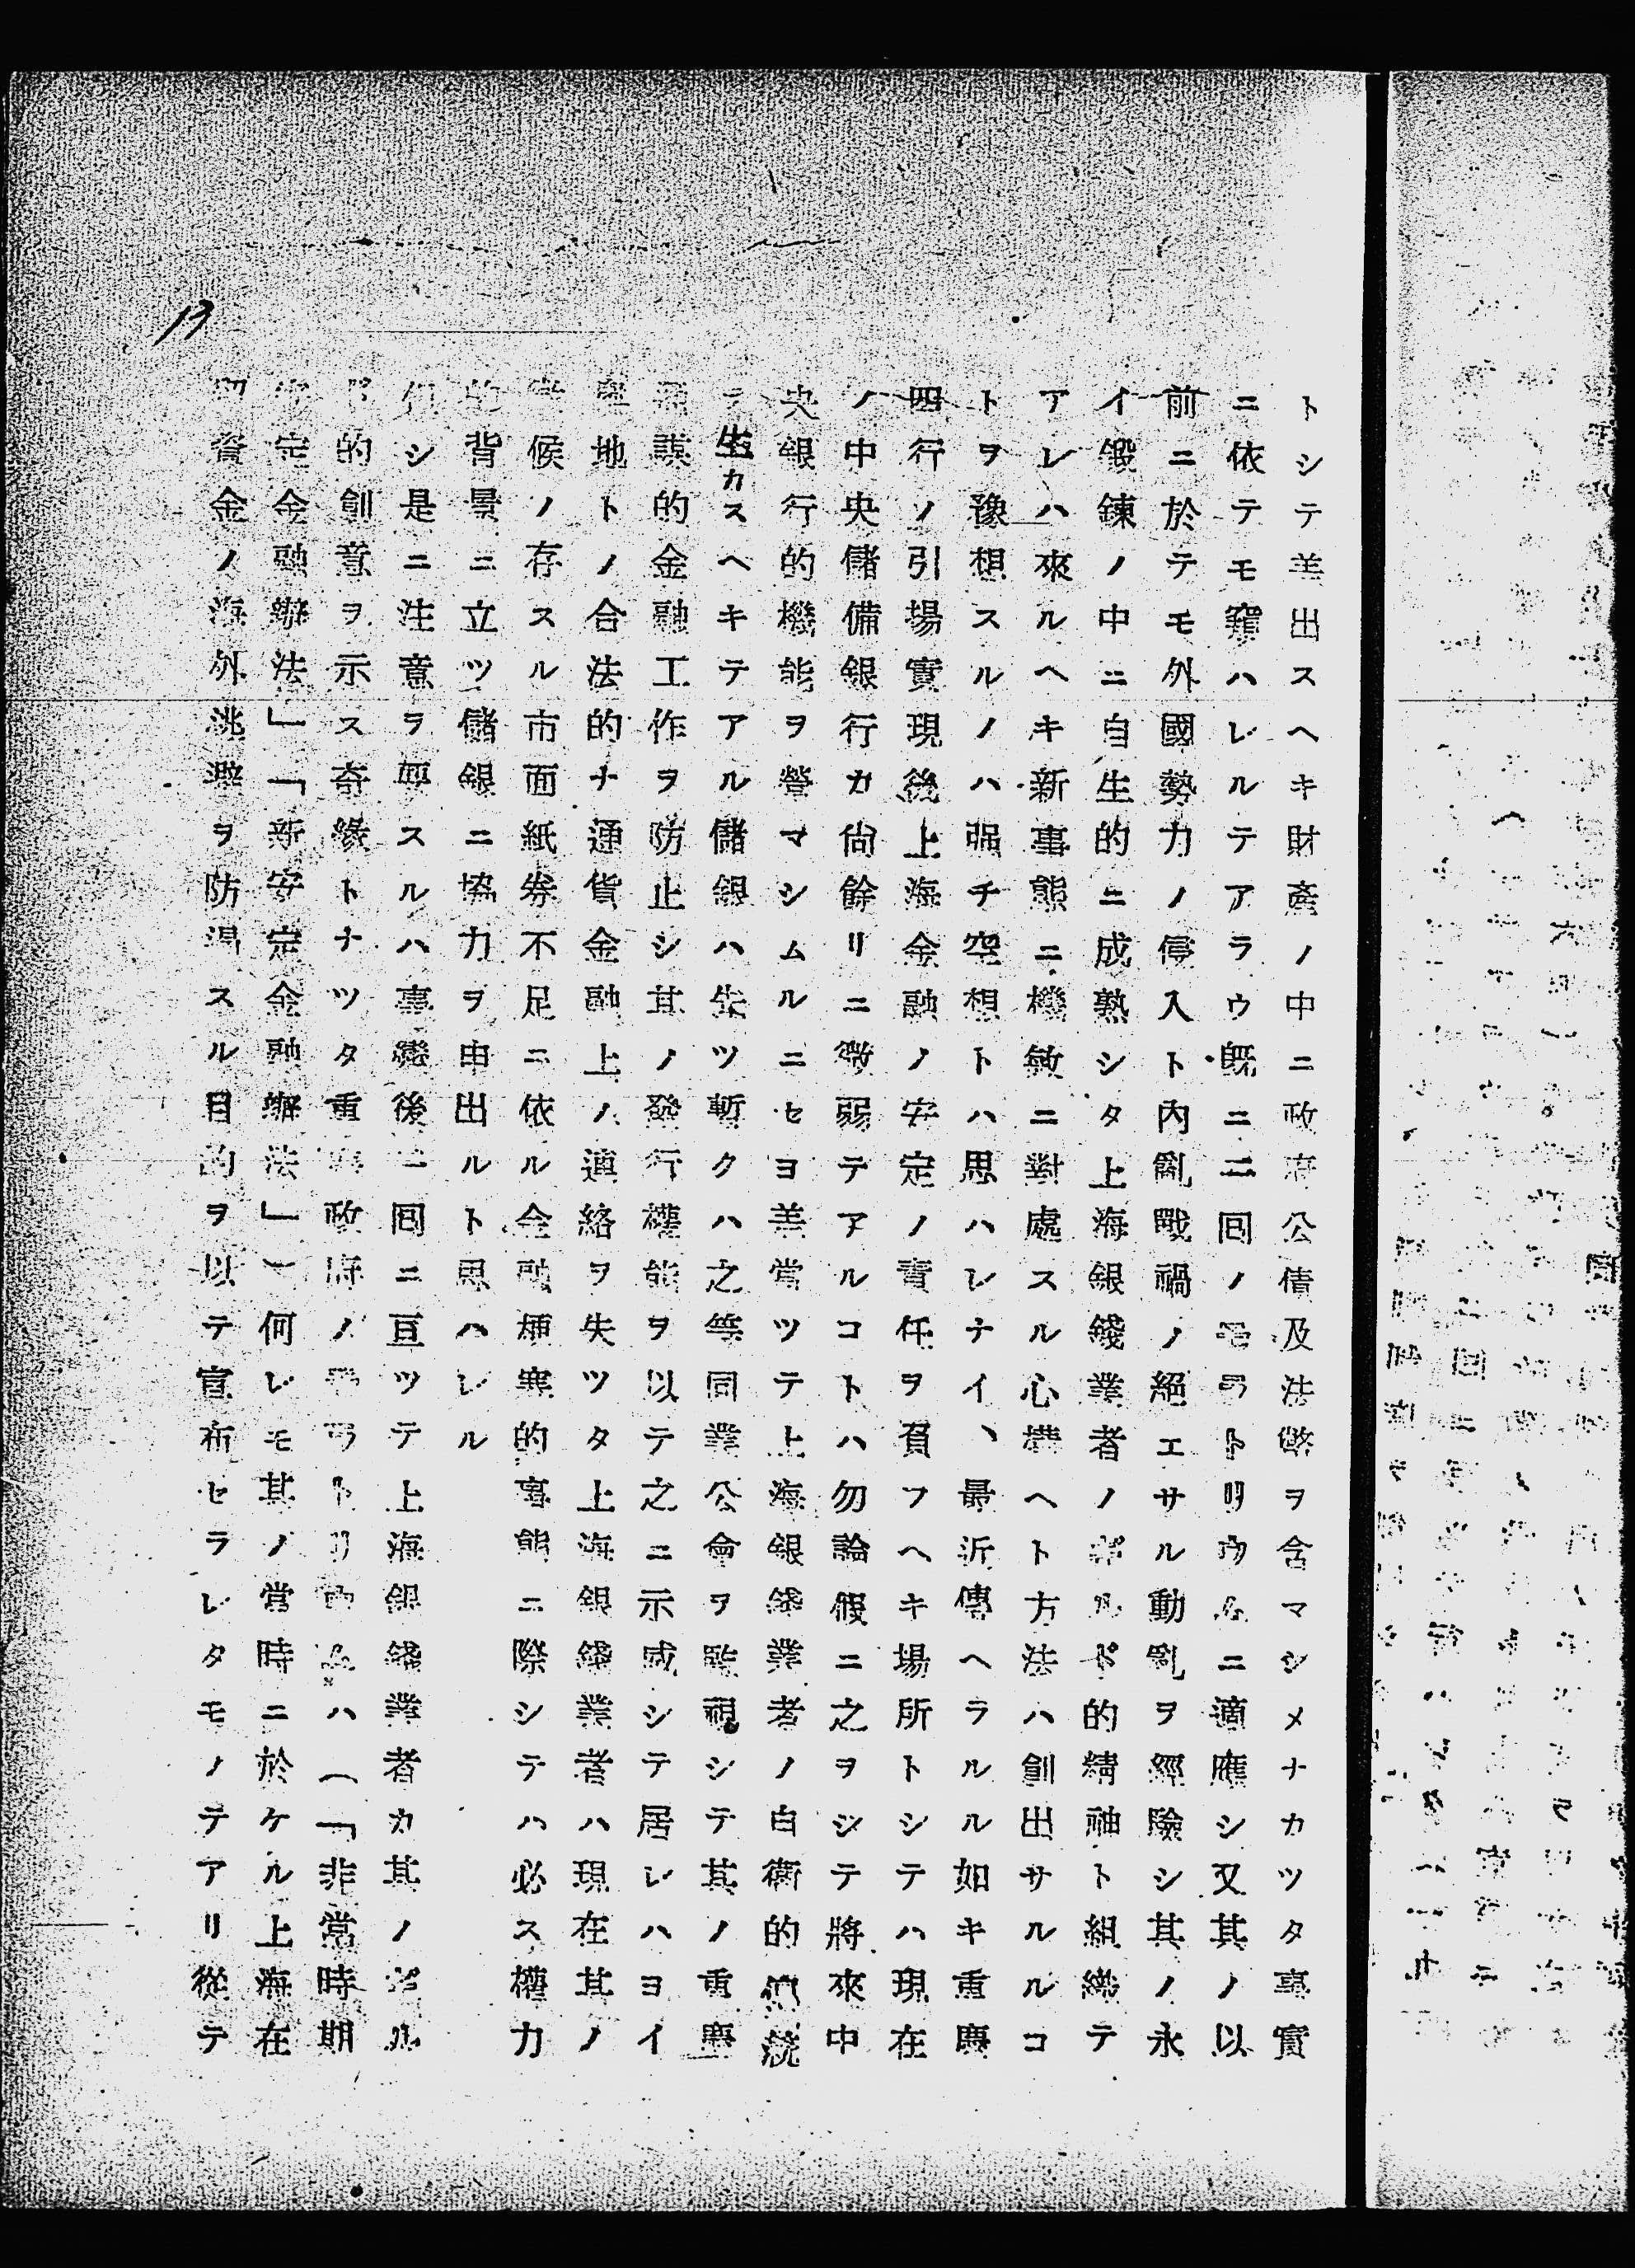 トシテ差出スヘキ財產ノ中ニ政府公債及法幣ヲ含マシメナカツタ事實
ニ依テモ窺ハレルテアラウ既ニ二回ノモラトリウムニ適應シ又其ノ以
前ニ於テモ外國勢力ノ侵入ト內亂戰禍ノ絕エサル動亂ヲ經險シ其ノ永
イ鍛鍊ノ中ニ自生的ニ成熟シタ上海銀錢業者ノギルド的精神ト組織テ
アレハ來ルヘキ新事態ニ機敏ニ對處スル心構ヘト方法ハ創出サルルコ
トヲ豫想スルノハ强チ空想トハ思ハレナイ、最近傳ヘラルル如キ重慶
四行ノ引揚實現後上海金融ノ安定ノ責任ヲ負フヘキ場所トシテハ現在
ノ中央儲備銀行カ尙餘リニ微弱テアルコトハ勿論假ニ之ヲシテ將來中
央銀行的機能ヲ營マシムルニセヨ差當ツテ上海銀錢業者ノ自衛的傳統
テ生カスヘキテアル儲銀ハ先ツ暫クハ之等同業公會ヲ監視シテ其ノ重慶
謀的金融工作ヲ防止シ其ノ發行權能ヲ以テ之ニ示威シテ居レハヨイ
地トノ合法的ナ通貨金融上ノ連絡ヲ失ツタ上海銀錢業者ハ現在其ノ
候ノ存スル市面紙券不足ニ依ル金融梗塞的事態ニ際シテハ必ス權力
背景ニ立ツ儲銀ニ協力ヲ申出ルト思ハレル
シ是ニ注意ヲ要スルハ事變後二回ニ亘ツテ上海銀錢業者カ其ノギル
ド的創意ヲ示ス奇緣トナツタ重慶政府ノモラトリウムハ（「非常時期
安定金融辦法」「新安定金融辦法」）何レモ其ノ當時ニ於ケル上海在
資金ノ海外逃避ヲ防遏スル目的ヲ以テ宣布セラレタモノテアリ從テ